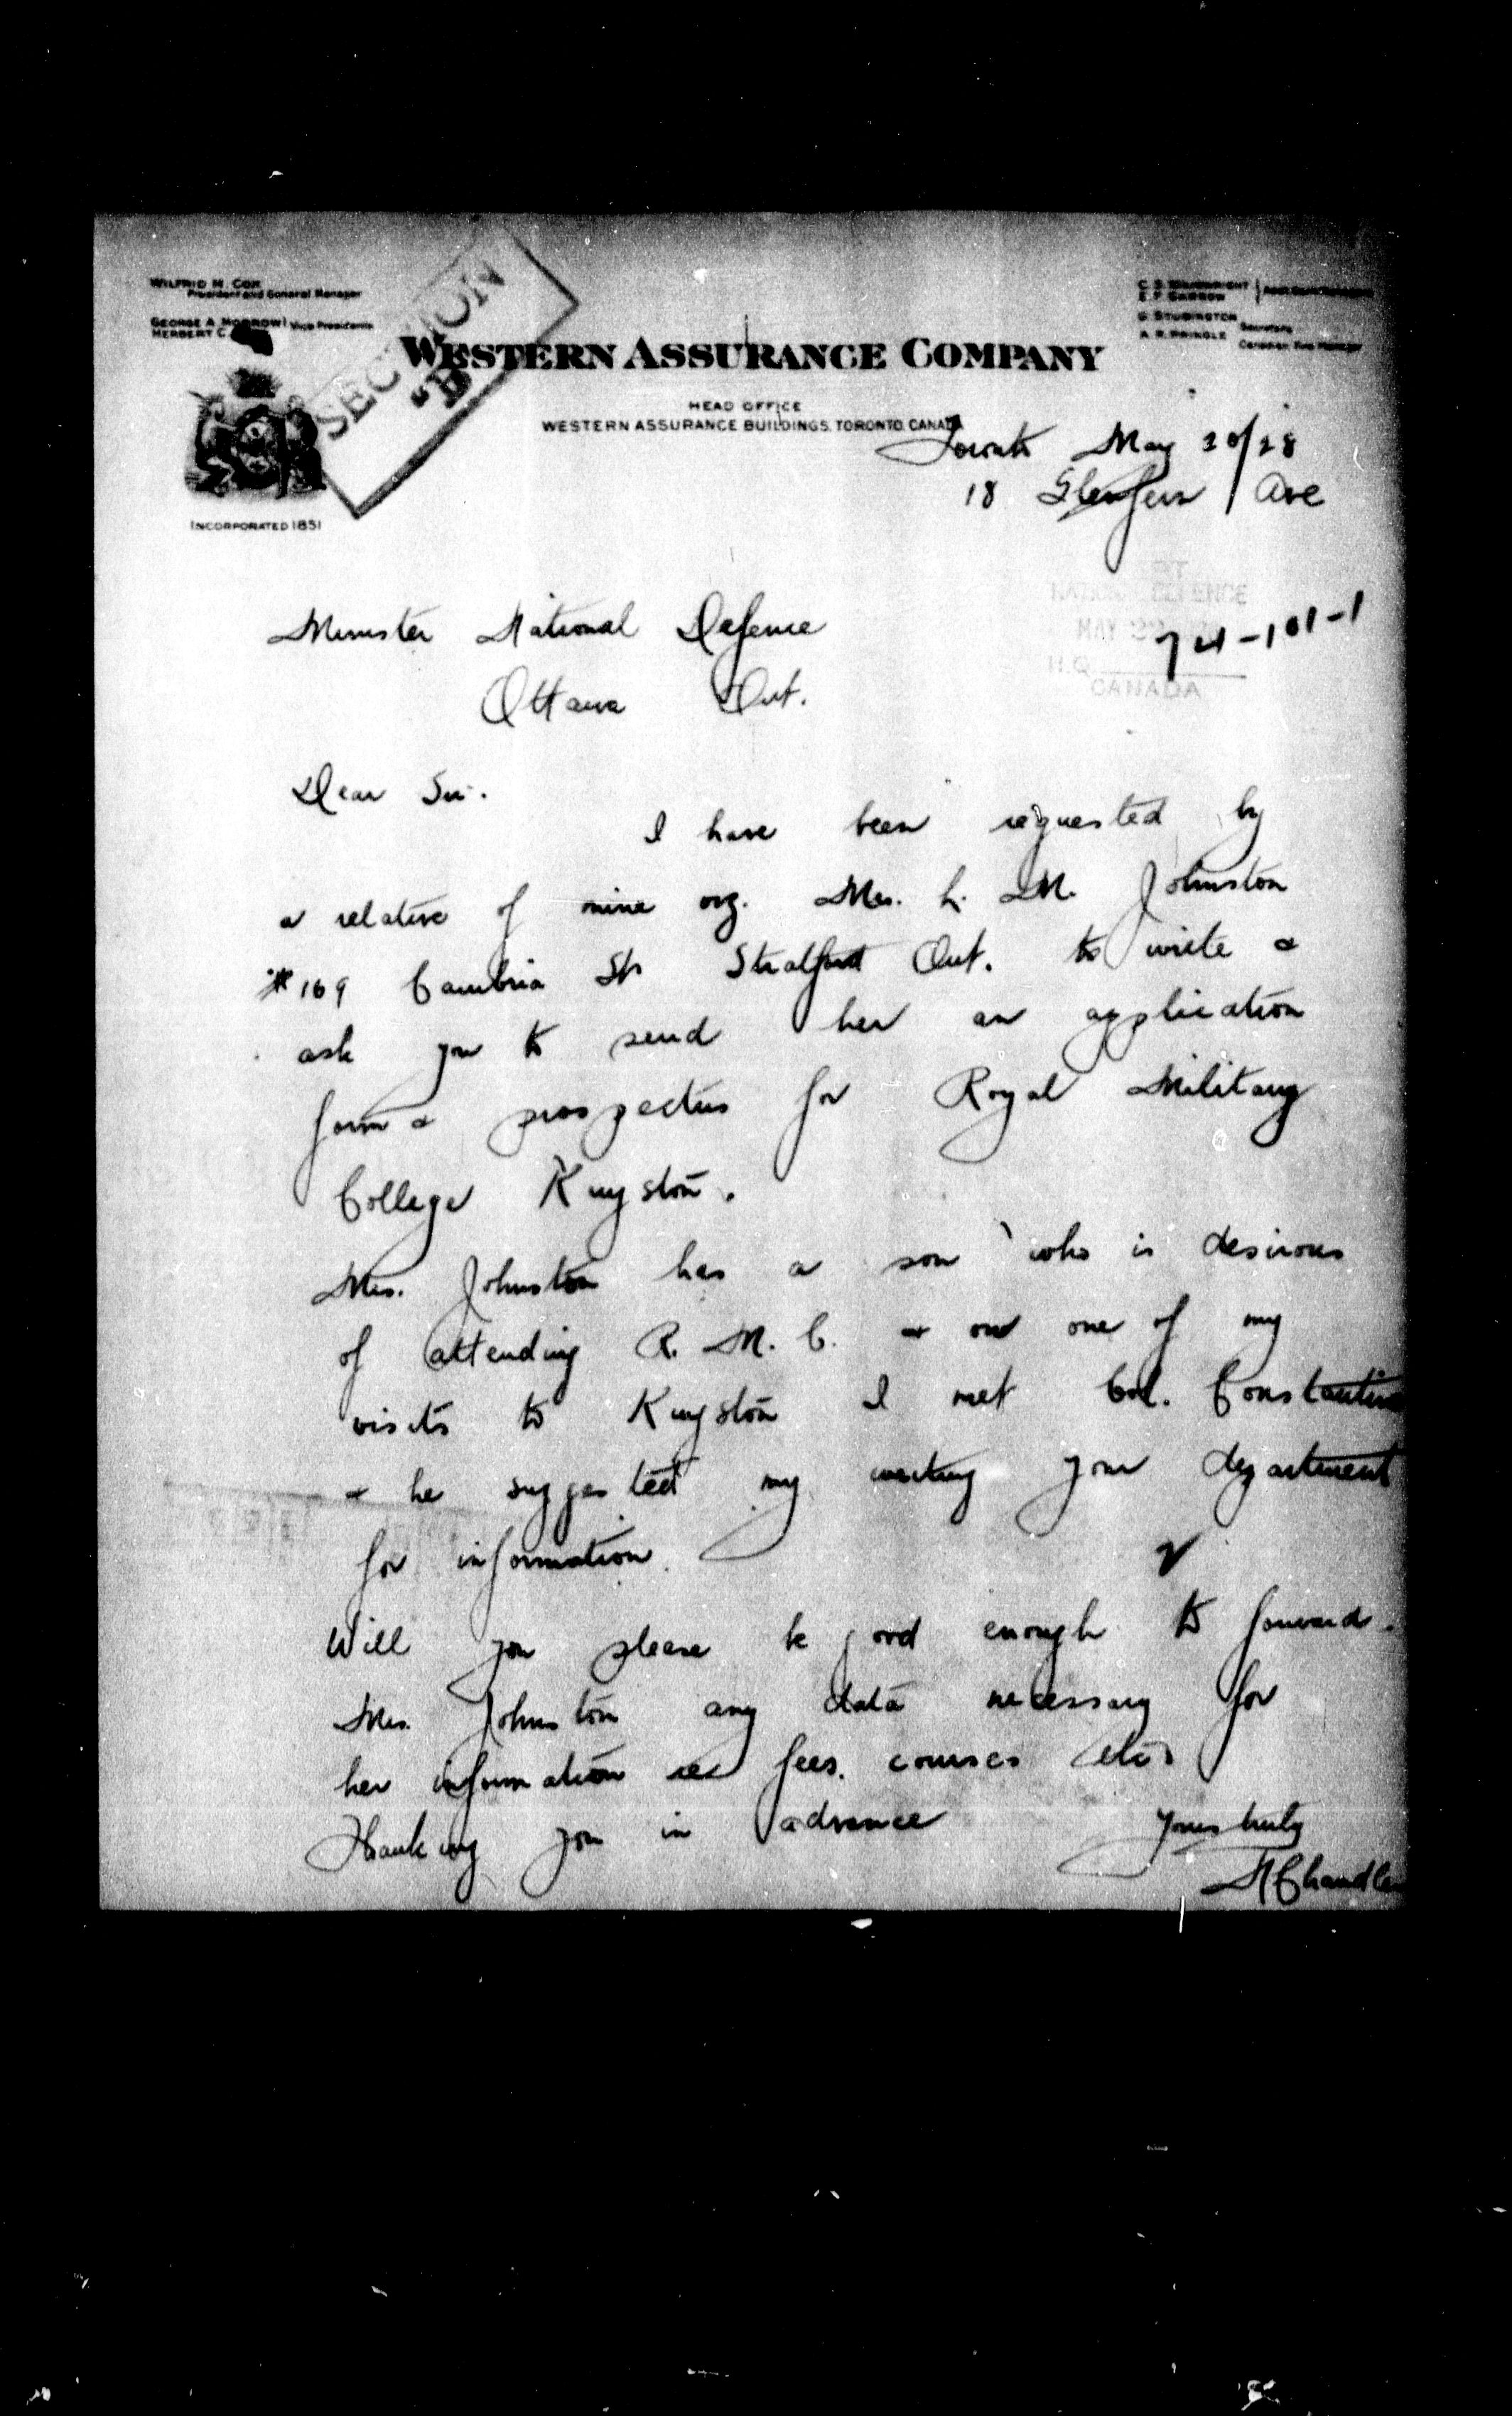 WILFRID M. COX
President and General Manager
GEORGE A. MORROW
HERBERT C.
Vice Presidents
E. F. GARROW
A. R. PRINGLE
Secretary
SECTION
"B"
WESTERN ASSURANCE COMPANY
HEAD OFFICE
WESTERN ASSURANCE BUILDINGS, TORONTO, CANADA
INCORPORATED 1851
Toronto May 20/28
18 Glenfern Ave
NATIONAL DEFENCE
MAY 22
H.Q.
CANADA
74-101-1
Minister National Defence
Ottawa Ont.
Dear Sir.
I have been requested by
a relative of mine Mrs. L. M. Johnston
#169 Cambria St Stratford Ont. to write &
ask you to send her an application
form & prospectus for Royal Military
College Kingston.
Mrs. Johnston has a son who is desirous
of attending R. M. C. & on one of my
visits to Kingston I met Col. Constantine
& he suggested my writing your department
for information.
Will you please be good enough to forward
Mrs. Johnston any data necessary for
her information re fees. courses etc
Thanking you in advance
Yours truly
Chandler